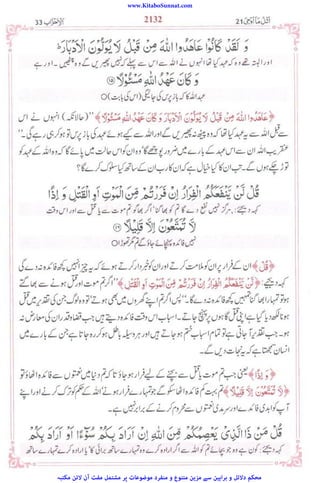 www.KitaboSunnat.com
اتل ما اوحی 21
2132
الاحزاب 33
وَ لَقَدْ كَانُوْا عَاهَدُوا اللّٰهَ مِنْ قَبْلُ لَا يُوَلُّوْنَ الْاَدْبَارَ ؕ
اور البتہ تھے وہ کہ عہد کیا تھا انہوں نے اللہ سے اس سے پہلے کہ نہیں پھیریں گے وہ پیٹھیں ۔ اور ہے
وَ كَانَ عَهْدُ اللّٰهِ مَسْئُوْلًا ﴿۱۵﴾
عہد اللہ کا باز پرس کی جائیگی (اس کی بابت) ○
﴿عَاهَدُوا اللّٰهَ مِنْ قَبْلُ لَا يُوَلُّوْنَ الْاَدْبَارَ وَ كَانَ عَهْدُ اللّٰهِ مَسْئُوْلًا﴾ (حالانکہ) انہوں نے اس
قبل اللہ سے یہ عہد کیا تھا کہ وہ پیٹھ نہ پھیریں گے اور اللہ سے کیے ہوئے عہد کی باز پرس تو ہو کر ہی رہے گی۔“
عنقریب اللہ ان سے اس عہد کے بارے میں ضرور پوچھے گا تو وہ ان کو اس حالت میں پائے گا کہ وہ اللہ کے عہد کو
توڑ چکے ہوں گے۔ تب ان کا کیا خیال ہے کہ ان کا رب ان کے ساتھ کیا سلوک کرے گا؟
قُلْ لَّنْ يَّنْفَعَكُمُ الْفِرَارُ اِنْ فَرَرْتُمْ مِّنَ الْمَوْتِ اَوِ الْقَتْلِ وَ اِذًا
کہہ دیجئے: ہرگز نہیں نفع دے گا تم کو بھاگنا اگر بھاگو تم موت سے یا قتل سے اور اس وقت
لَّا تُمَتَّعُوْنَ اِلَّا قَلِيْلًا ﴿۱۶﴾
نہیں فائدہ پہنچائے جاؤ گے تم مگر تھوڑا ○
﴿قُلْ﴾ ان کے فرار پر ان کو ملامت کرتے اور ان کو خبردار کرتے ہوئے کہ یہ چیز انہیں کچھ فائدہ نہ دے گی
کہہ دیجئے: ﴿لَّنْ يَّنْفَعَكُمُ الْفِرَارُ اِنْ فَرَرْتُمْ مِّنَ الْمَوْتِ اَوِ الْقَتْلِ﴾ ”اگر تم موت اور قتل ہونے سے بھاگتے
ہو تو تمہارا بھاگنا تمہیں کچھ فائدہ نہ دے گا۔“ پس اگر تم اپنے گھروں میں بھی ہوتے تو وہ لوگ جن کی تقدیر میں قتل
ہونا لکھ دیا گیا ہے اپنی قتل گاہوں پر پہنچ جاتے۔ اسباب اس وقت فائدہ دیتے ہیں جب قضا و قدر ان کی معارض نہ
ہو۔ جب تقدیر آ جاتی ہے تو تمام اسباب ختم ہو جاتے ہیں اور ہر وسیلہ باطل ہو کر رہ جاتا ہے جن کے بارے میں
انسان سمجھتا ہے کہ یہ نجات دیں گے۔
﴿وَ اِذًا﴾ یعنی جب تم موت یا قتل سے بچنے کے لیے فرار ہو جاؤ تاکہ تم دنیا میں نعمتوں سے فائدہ اٹھاؤ تو
﴿لَّا تُمَتَّعُوْنَ اِلَّا قَلِيْلًا﴾ تم بہت کم فائدہ اٹھا سکو گے جو تمہارے فرار ہونے اللہ کے حکم کو ترک کرنے اور اپنے
آپ کو ابدی فائدے اور سرمدی نعمتوں سے محروم کرنے کے برابر نہیں ہے۔
قُلْ مَنْ ذَا الَّذِيْ يَعْصِمُكُمْ مِّنَ اللّٰهِ اِنْ اَرَادَ بِكُمْ سُوْٓءًا اَوْ اَرَادَ بِكُمْ
کہہ دیجئے: کون ہے وہ جو بچائے تم کو اللہ سے اگر ارادہ کرے وہ تمہارے ساتھ برائی کا یا ارادہ کرے تمہارے ساتھ
محکم دلائل و براہین سے مزین متنوع و منفرد موضوعات پر مشتمل مفت آن لائن مکتبہ